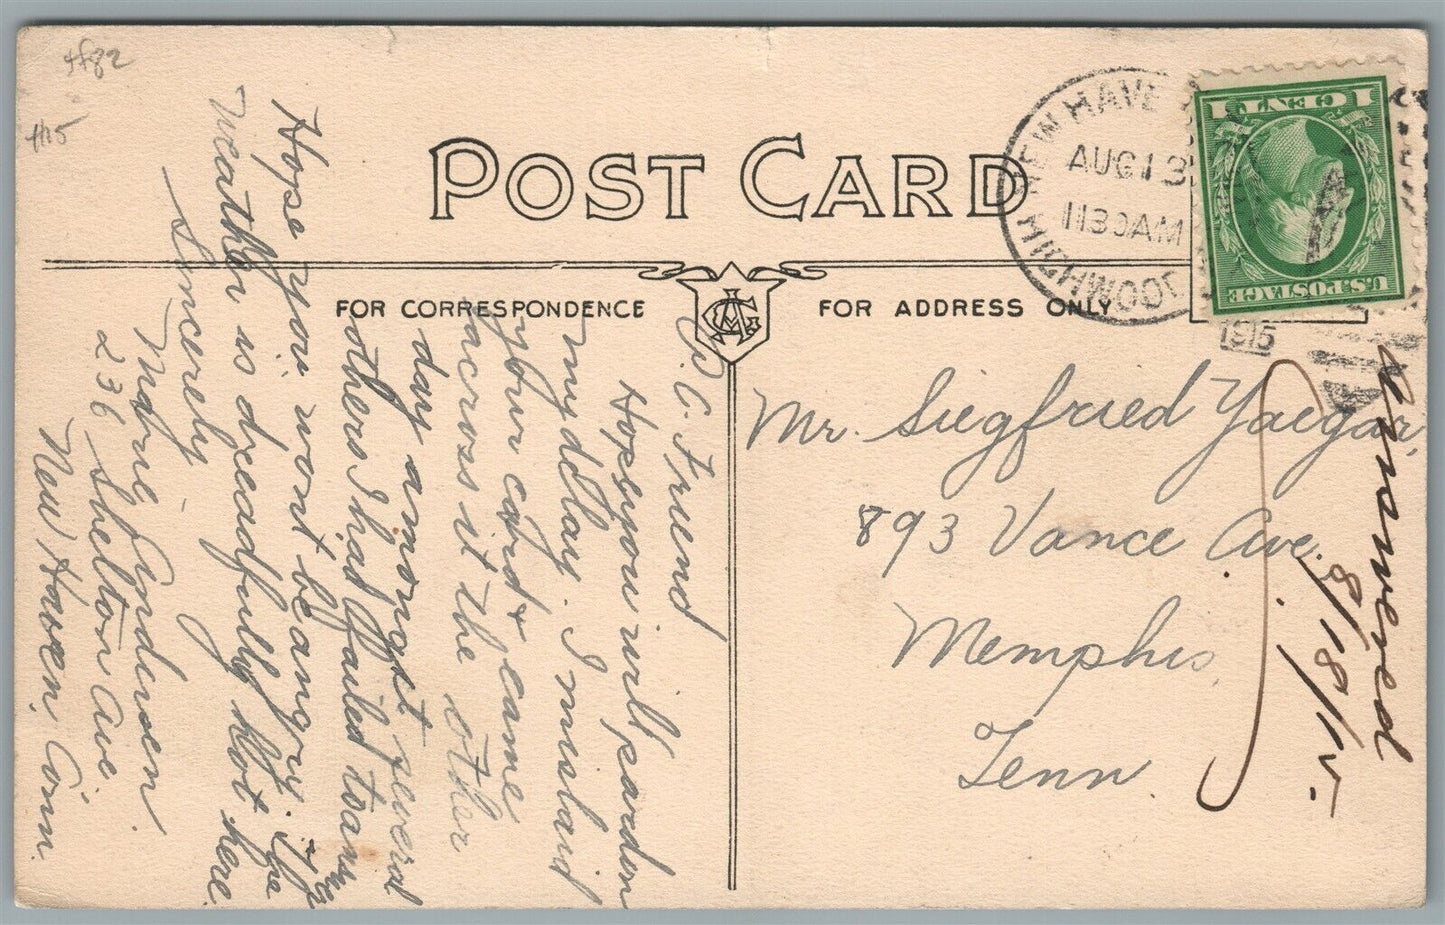 #82
#15
POST CARD
NEW HAVEN
AUG 13
1130 AM
1915
CONN.
1 CENT 1
U.S. POSTAGE
FOR CORRESPONDENCE
FOR ADDRESS ONLY
W. C. Friend
Hope you will pardon
my delay. I mislaid
your card & came
across it the other
day amongst several
others I had failed to answer
Hope you wont be angry. The
weather is dreadfully hot here.
Sincerely -
Andersen.
236 Shelton Ave.
New Haven, Conn.
Mr. Siegfried Yaegar,
893 Vance Ave.
Memphis,
Tenn.
Answered
8/18/15-